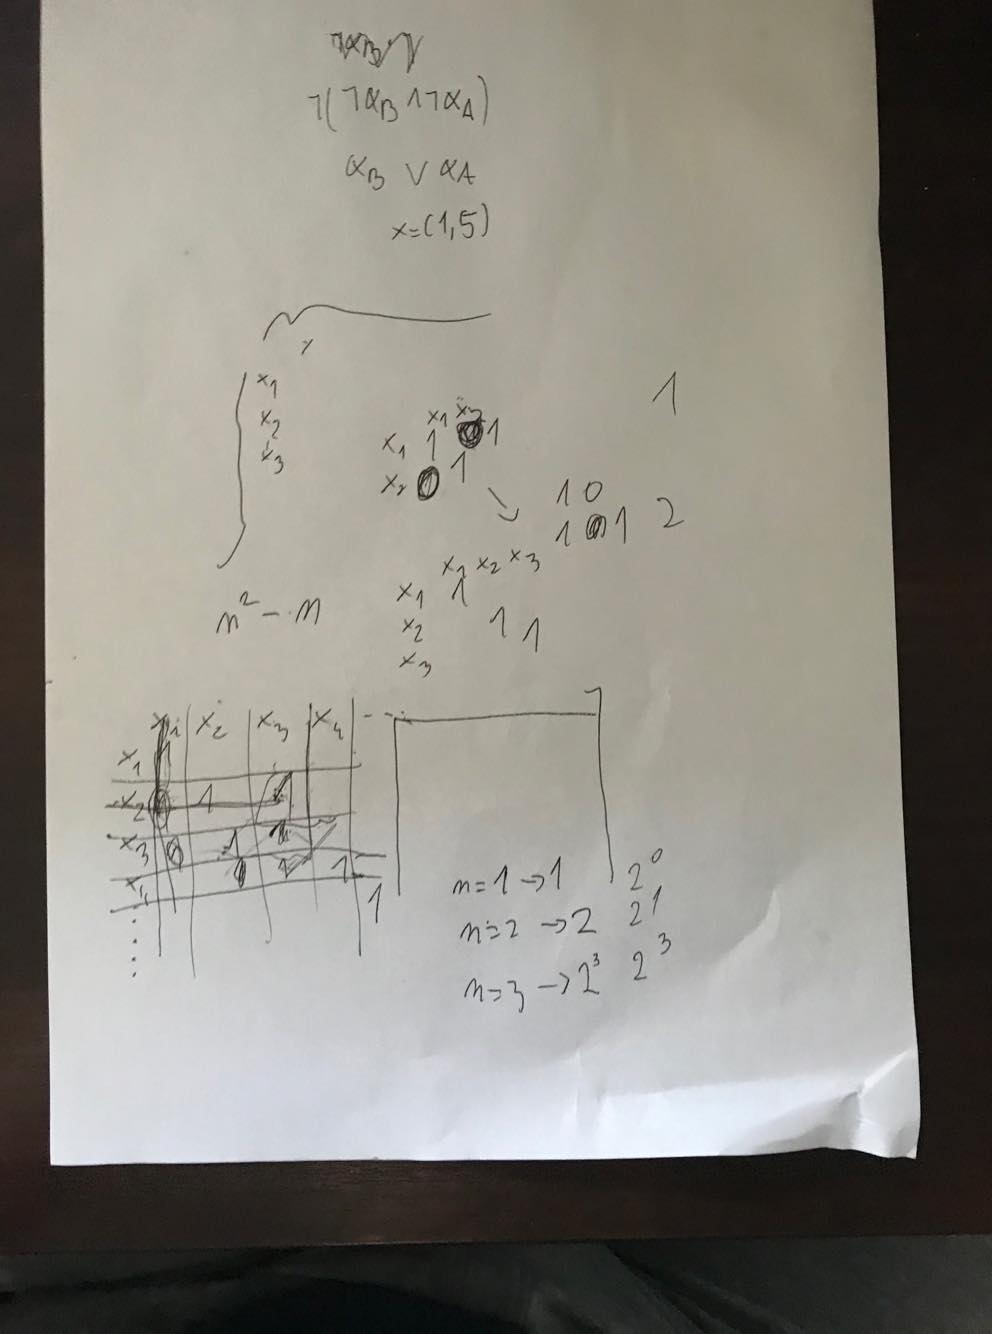 ¬(¬α_B ∧ ¬α_A)
α_B ∨ α_A
x=(1,5)
x₁
x₂
x₃
1
x₁ x₂
x₁ 1 1
x₂ 1
1 0
1 1 2
n² - n
x₁ x₂ x₃
x₁ 1
x₂ 1 1
x₃
x₁ x₂ x₃ x₄
x₁ 1
x₂ 1
x₃ 1
x₄ 1
1
n=1 → 1 2⁰
n=2 → 2 2¹
n=3 → 2³ 2³